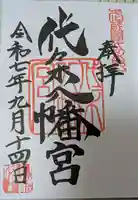 奉拝
代々木八幡宮
令和七年九月十四日